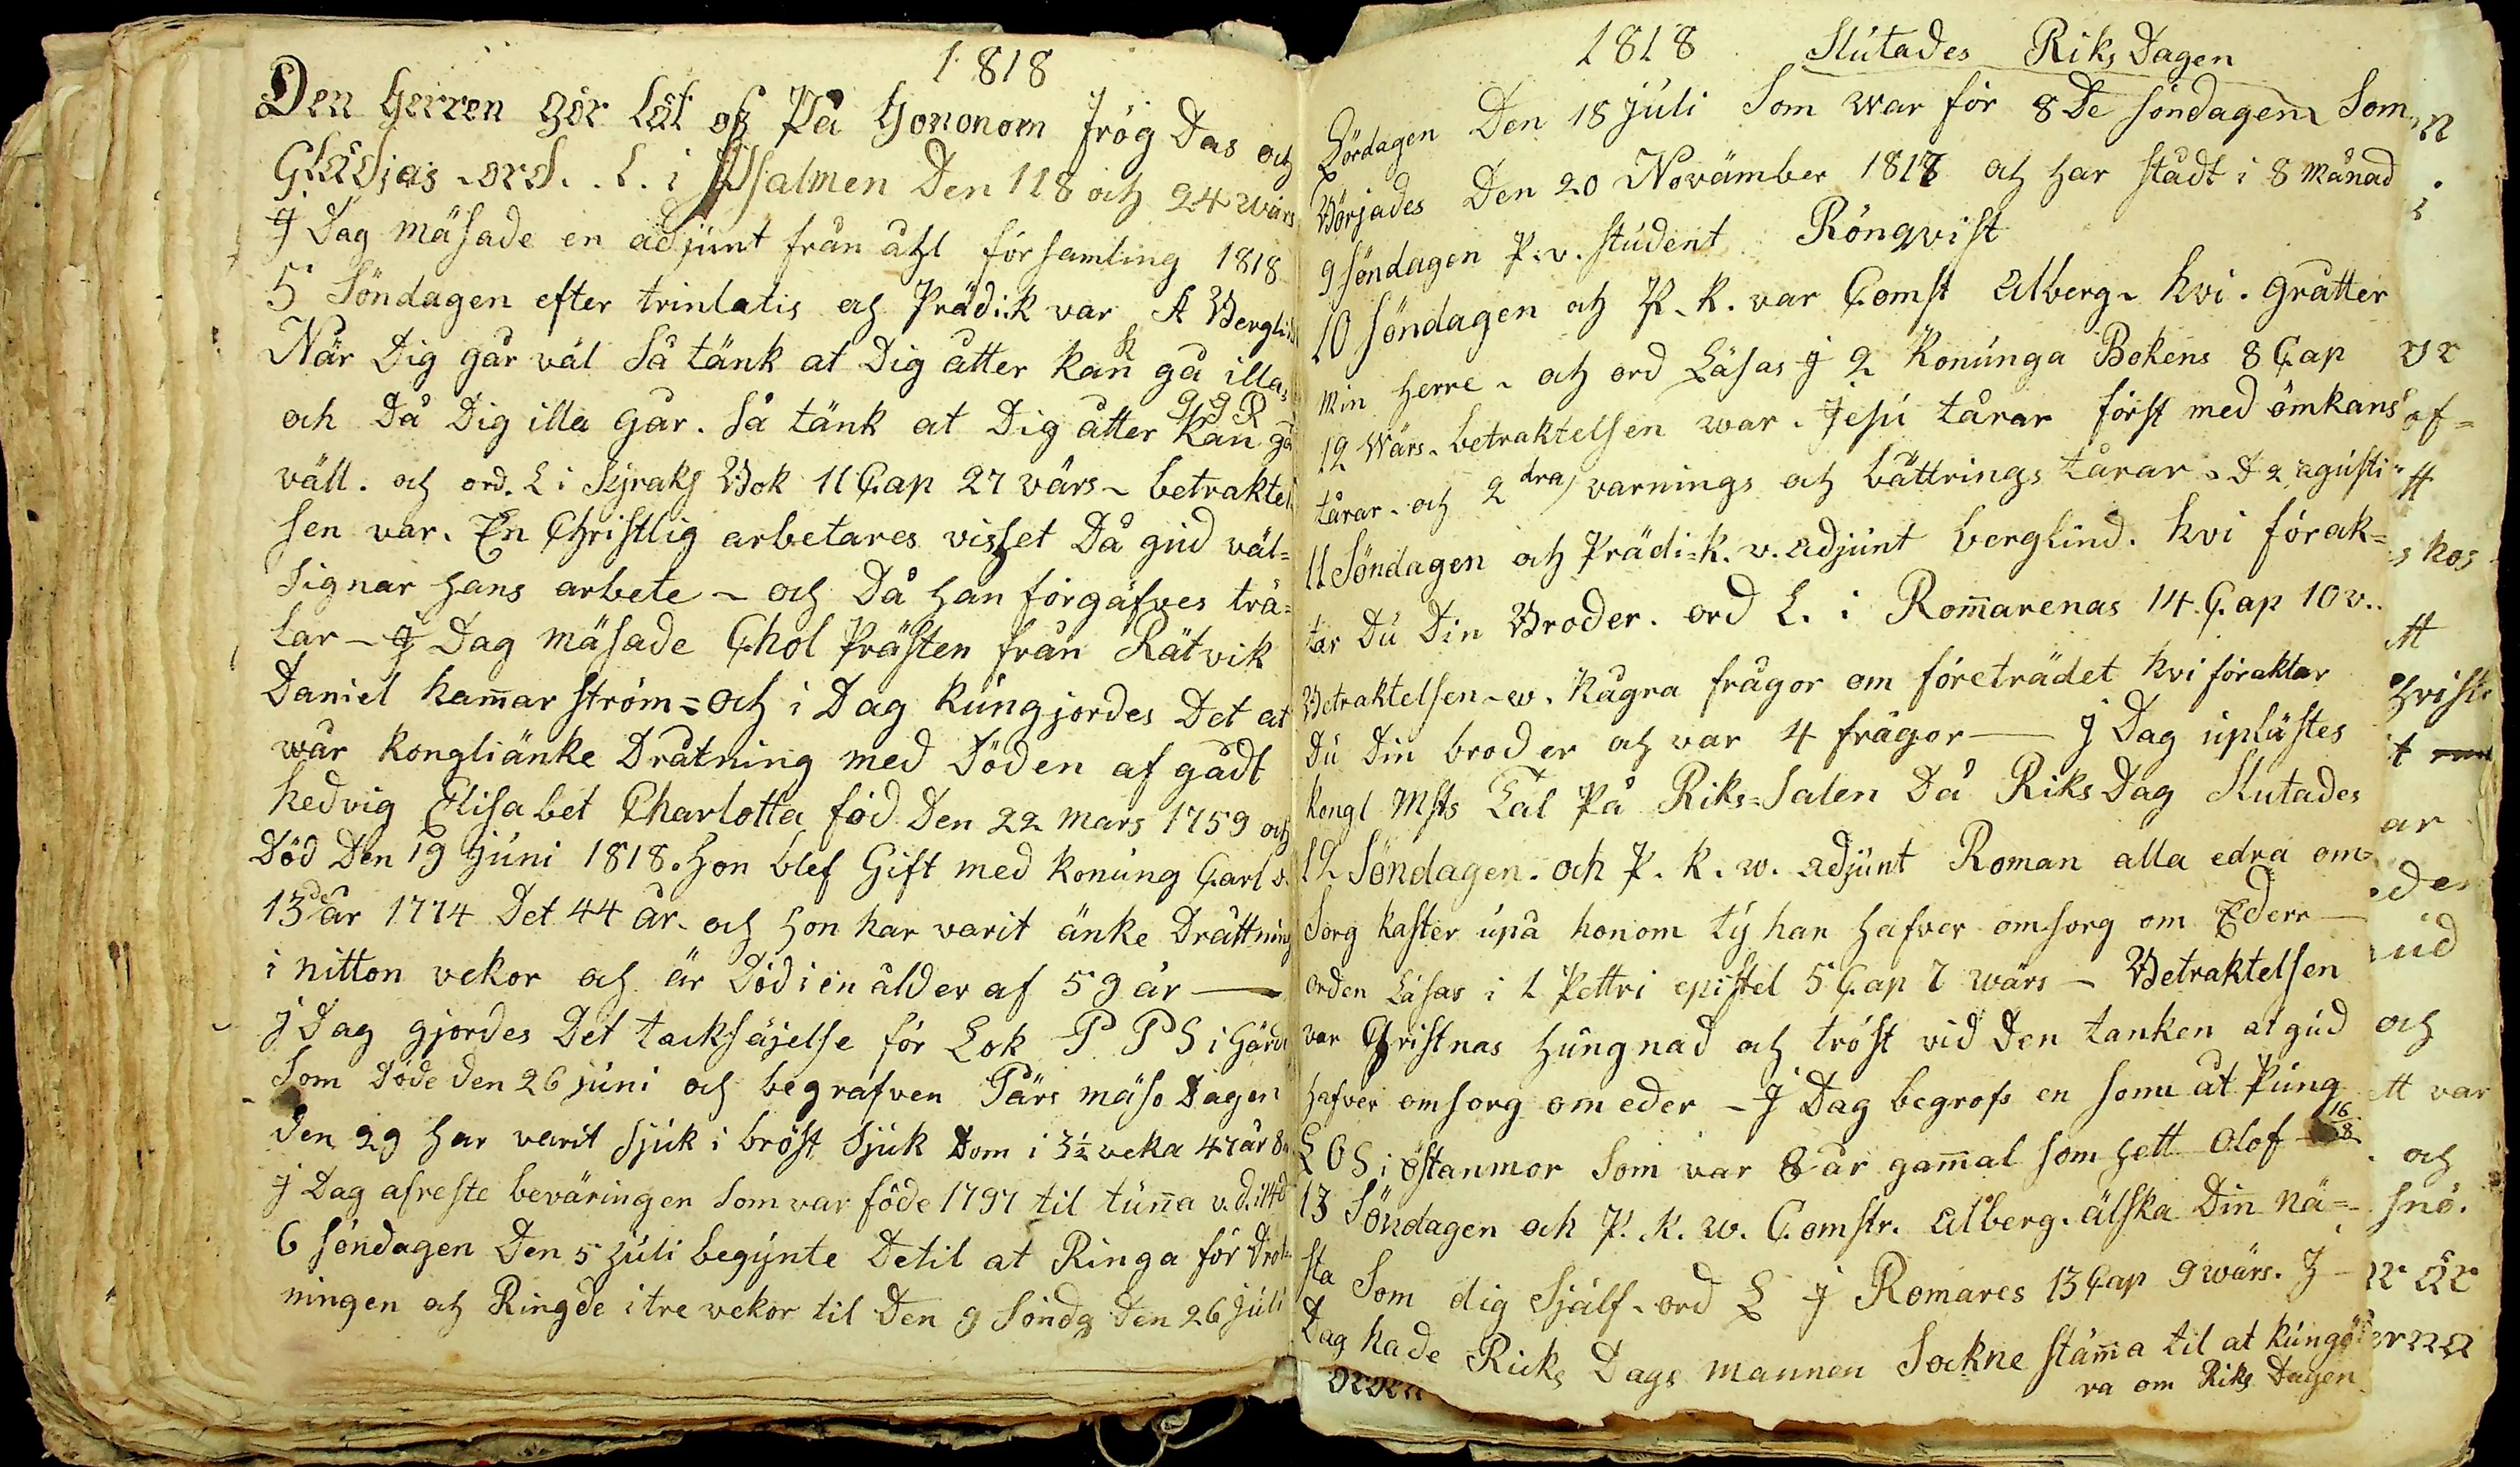 1818
Den Herren gör låt oss På Honom frög Das och
Glädjas ord. L. i Psalmen Den 118 och 24 wärs
J Dag mäsade en adjunt från åhl församling 1818
5 Söndagen efter trinlatis och Prädi:k var A Berglind
När Dig går väl Så tänk at Dig åtter kan gå illa,
och Då Dig illa går. Så tänk at Dig åtter kan gå
väll. och ord. L i Syraks Bok 11 Cap 27 värs ~ betraktel
sen var. En Christlig arbetares visset Då gud väl=
signar hans arbete ~ och Då han förgäfves trä=
lar ~ J Dag mäsade Chol Prästen från Rätvik
Daniel hamar ström = och i Dag kungjordes Det at
wår kongliänke Dråtning med Döden af gådt
hedvig Elisabet Charlotta föd Den 22 mars 1759 och
Död Den 19 juni 1818. Hon blef Gift med konung Carl d.
13de år 1774 Det 44 år. och hon har varit änke Dråttning
i nitton vekor och är Död i en ålder af 59 år —
j Dag gjordes Det tacksäjelse för Lok P P S i Gärde
Som döde den 26 juni och begrafven Pärs mäso Dagen
den 29 har varit sjuk i bröst sjuk Dom i 3½ veka 47 år 8
j Dag afreste beväringen som var föde 1797 til tuna v. d.
6 söndagen Den 5 Juli begynte Detil at Ringa för Drot=
ningen och Ringde i tre vekor til Den 9 Söndg Den 26 juli
1818 Slutades Riks Dagen
Lördagen Den 18 juli Som war för 8De söndagen Som
Börjades Den 20 Novämber 1817 och har stådt i 8 månad
9 söndagen P.v. student Rönqvist
10 söndagen och P. k. var Comst Alberg ~ hvi. gråtter
min herre ~ och ord Läsas j 2 Konunga Bokens 8 Cap
12 wärs. betraktelsen war. Jesu tårar först med ömkans
tårar. och 2dra) varnings och bättrings tårar. D 2 agusti
11 Söndagen och Prädi=k. v. adjunt berglind. hvi förak=
tar Du Din Broder. ord L. i Romarenas 14. Cap 10 v..
Betraktelsen ~ w. Några frågor om företrädet hvi föraktar
Du Din broder och var 4 frågor — j Dag uplästes
kongl Msts Tal På Riks=Salen Då Riks Dag Slutades
12 Söndagen. och P. k. w. adjunt Roman alla edra om=
Sorg kaster upå honom ty han hafver omsorg om Eder —
orden Läsas i 1 Pettri epistel 5 Cap 7 wärs — Betraktelsen
var Christnas hungnad och tröst vid Den tanken at gud
hafver omsorg om eder — J Dag begrofs en sonn åt Pung
L O S i östanmor Som var 8 år gamal som hett Olof 16/8
13 Söndagen och P. k. w. Comstr. Alberg. älska Din nä=
sta Som dig sjålf. ord L j Romares 13 Cap 9 wärs. J
Dag hade Ricks Dags mannen Sockne stämma til at kungö
ra om Riks Dagen